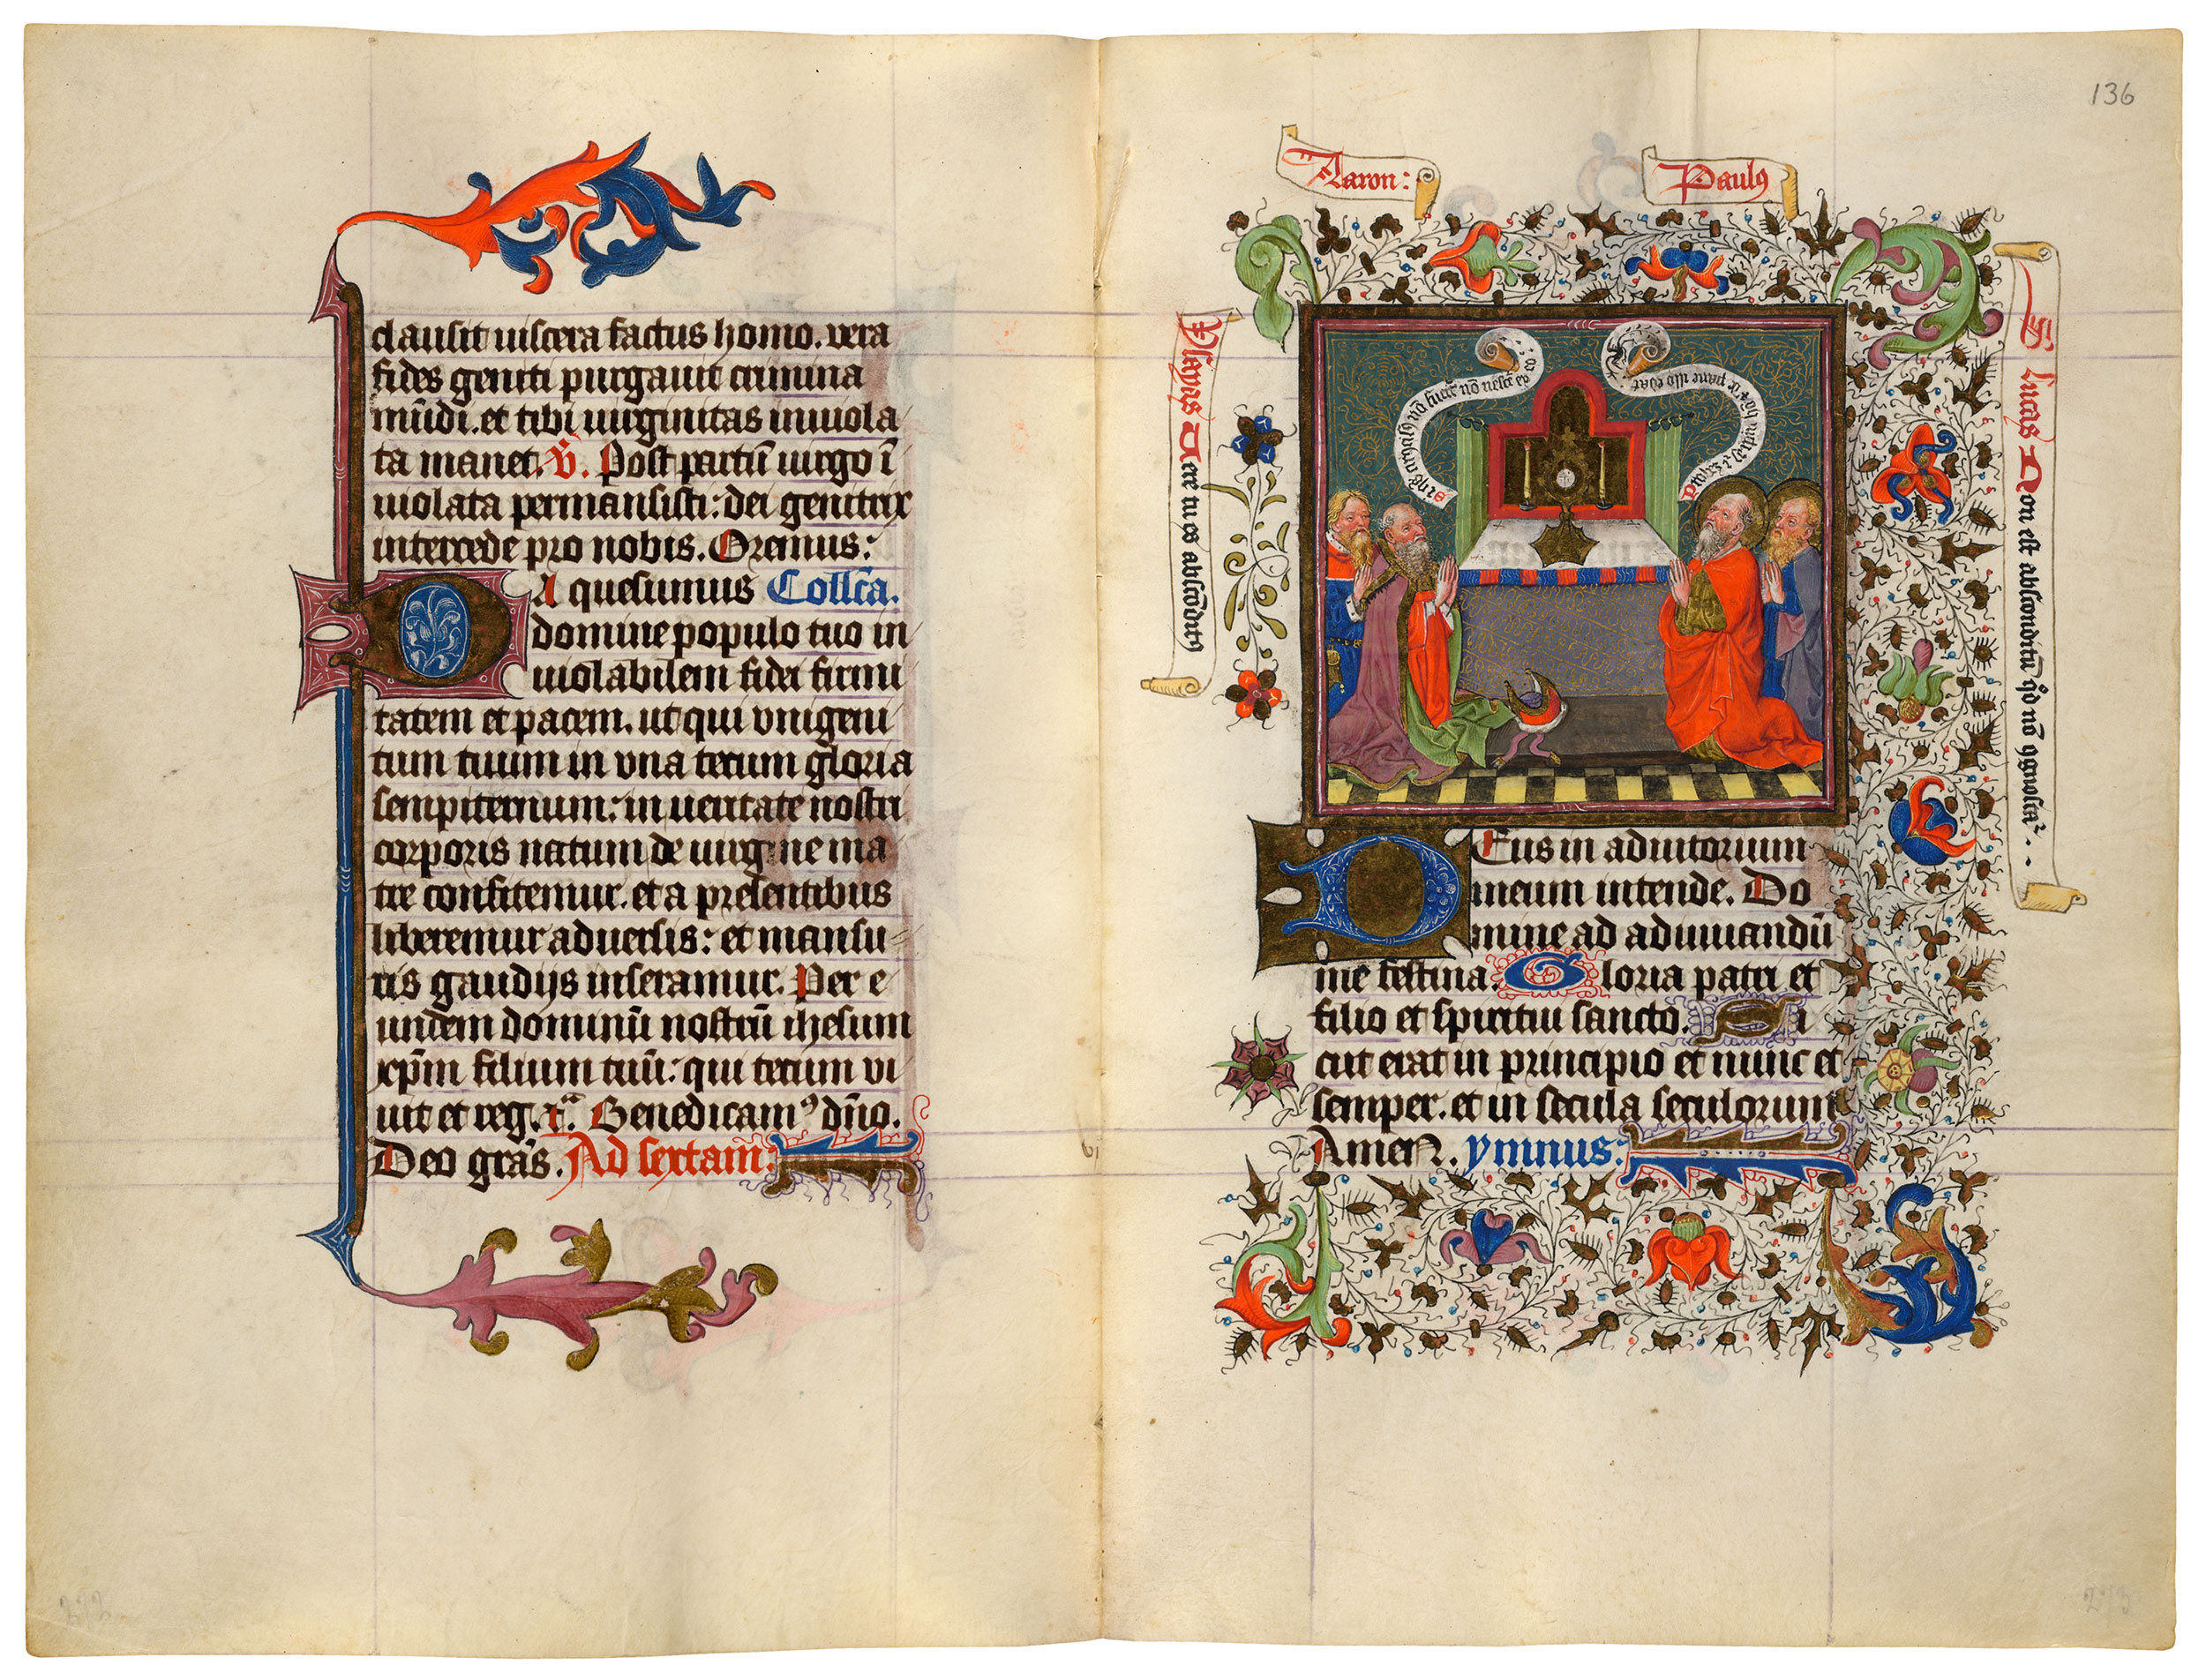 clausit uiscera factus homo. vera
fides geniti purgauit crimina
mūdi. et tibi uirginitas inuiola
ta manet. V̄. Post partū uirgo ī
uiolata permansisti: dei genitrix
intercede pro nobis. Oremus:
DA quesumus Collc̄a.
domine populo tuo in
uiolabilem fidei firmi
tatem et pacem. ut qui vnigeni
tum tuum in vna tecum gloria
sempiternum: in ueritate nostri
corporis natum de uirgine ma
tre confitemur. et a presentibus
liberemur aduersis: et mansu
ris gaudijs inseramur. Per e
undem dominū nostrū ihesum
xp̄m filium tuū: qui tecum vi
uit et reg. rͣ. Benedicamꝰ dn̄o.
Deo grās. Ad sextam:
136
Aaron:
Paulꝯ
Ysayas Uere tu es abscōditꝯ
S Lucas Non est absconditū qd̄ nō
Probet
DEus in adiutorium
meum intende. Do
mine ad adiuuandū
me festina. Gloria patri et
filio et spiritui sancto. Si
cut erat in principio et nunc et
semper. et in secula seculorum
Amen. ymnus: